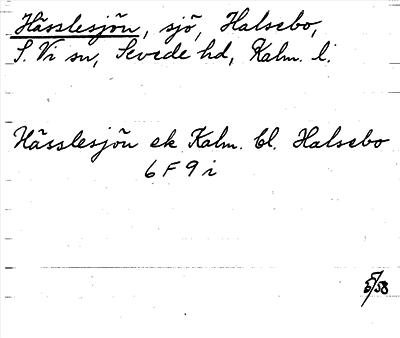 Hässlesjön, sjö, Halsebo,
S. Vi sn, Sevede hd, Kalm. l.
Hässlesjön ek Kalm. bl. Halsebo
6 F 9 i
5/58